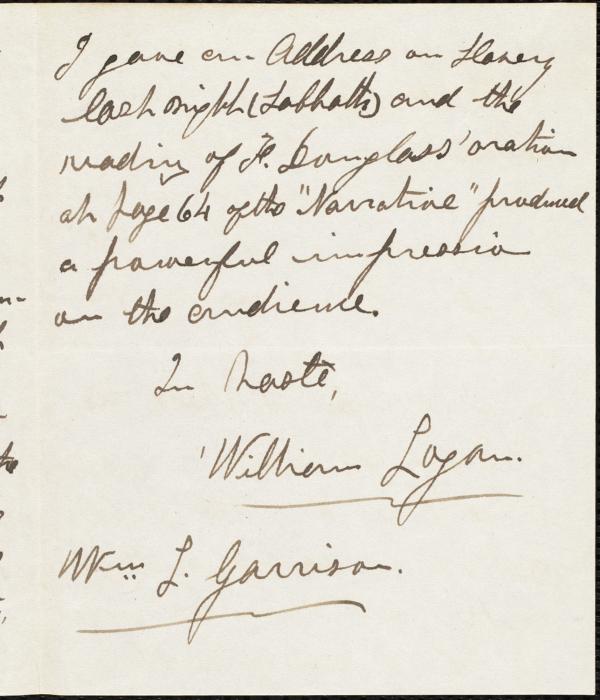 I gave an Address on Slavery
last night (Sabbath) and the
reading of F. Douglass' oration
at page 64 of the "Narrative" produced
a powerful impression
on the audience.
In haste,
William Logan.
Wm. L. Garrison.